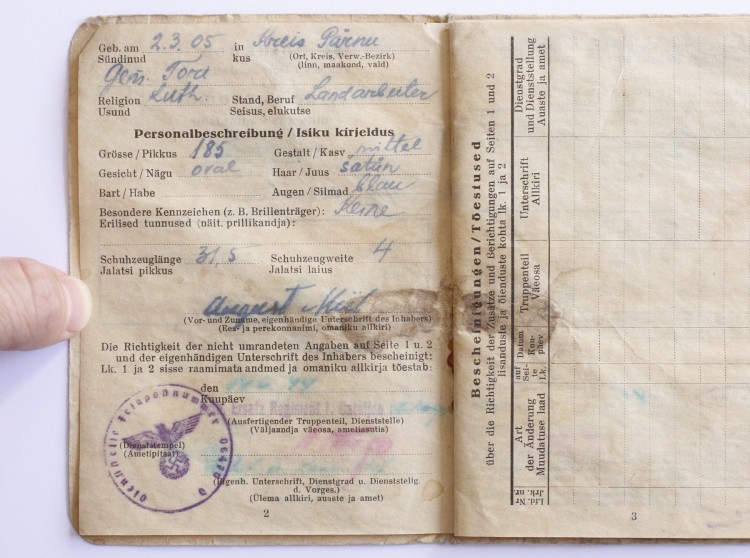 Geb. am 2.3.05 in Kreis Pärnu
Sündinud kus (Ort, Kreis, Verw.-Bezirk)
(linn, maakond, vald)
Gem. Tori
Religion Luth. Stand, Beruf Landarbeiter
Usund Seisus, elukutse
Personalbeschreibung / Isiku kirjeldus
Grösse / Pikkus 185 Gestalt / Kasv mittel
Gesicht / Nägu oval Haar / Juus
Bart / Habe Augen / Silmad blau
Besondere Kennzeichen (z. B. Brillenträger): Keine
Erilised tunnused (näit. prillikandja):
Schuhzeuglänge 31,5 Schuhzeugweite 4
Jalatsi pikkus Jalatsi laius
August
(Vor- und Zuname, eigenhändige Unterschrift des Inhabers)
(Ees- ja perekonnanimi, omaniku allkiri)
Die Richtigkeit der nicht umrandeten Angaben auf Seite 1 u. 2
und der eigenhändigen Unterschrift des Inhabers bescheinigt:
Lk. 1 ja 2 sisse raamimata andmed ja omaniku allkirja tõestab:
den
Kuupäev
(Ausfertigender Truppenteil, Dienststelle)
(Väljaandja väeosa, ametiasutis)
Dienststelle Feldpostnummer
(Dienststempel)
(Ametipitsat)
(Eigenh. Unterschrift, Dienstgrad u. Dienststellg.
d. Vorges.)
(Ülema allkiri, auaste ja amet)
2
Bescheinigungen / Tõestused
über die Richtigkeit der Zusätze und Berichtigungen auf Seiten 1 und 2
lisanduste ja õienduste kohta lk. 1 ja 2
Lfd. Nr
Jrk. nr.
Art
der Änderung
Muudatuse laad
auf
Sei-
te
Lk.
Datum
Kuu-
päev
Truppenteil
Väeosa
Unterschrift
Allkiri
Dienstgrad
und Dienststellung
Auaste ja amet
3